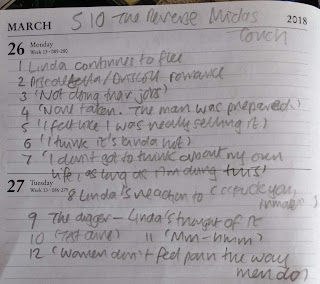 MARCH S10 The Reverse Midas 2018
Touch
26 Monday
Week 13 · 085-280
1 Linda continues to flee
2 / Driscoll romance
3 'Not doing their jobs'
4 'Nora taken. The man was prepared)
5 'I felt like I was really selling it)
6 'I think it's kinda hot)
7 'I don't got to think about my own
life, as long as I'm doing this'
27 Tuesday
Week 13 · 086-279
8 Linda's reaction to
9 The digger – Linda's thought of it
10 (Test drive) 11 'Mm-hmm)
12 'Women don't feel pain the way
men do)